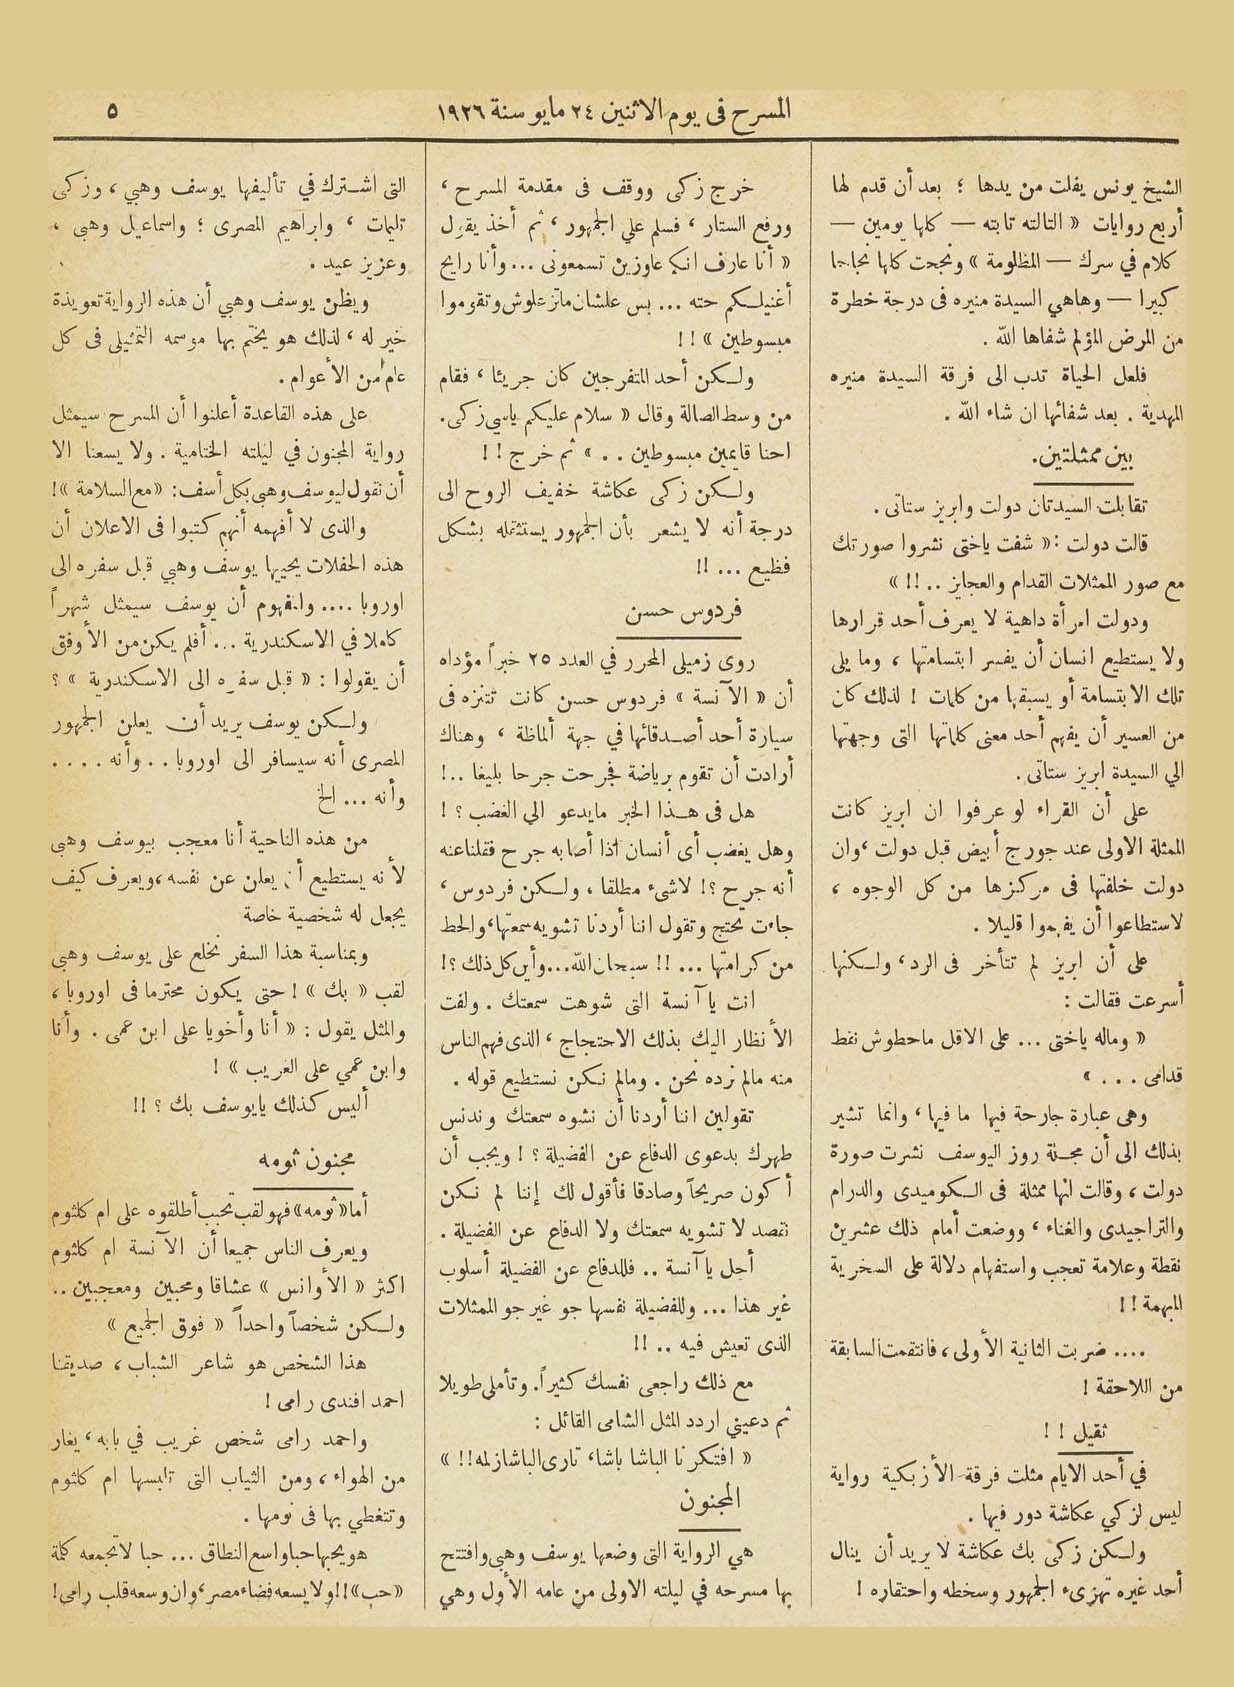 المسرح فى يوم الاثنين ٢٤ مايو سنة ١٩٢٦
٥
الشيخ يونس يفلت من يدها ؛ بعد أن قدم لها
أربع روايات « التالته تابته — كلها يومين —
كلام في سرك — المظلومة » ونجحت كلها نجاحا
كبيرا — وهاهي السيدة منيره فى درجة خطرة
من المرض المؤلم شفاها الله .
فلعل الحياة تدب الى فرقة السيدة منيره
المهدية . بعد شفائها ان شاء الله .
بين ممثلتين.
تقابلت السيدتان دولت وابريز ستاتى .
قالت دولت : « شفت ياختى نشروا صورتك
مع صور الممثلات القدام والعجايز .. !! »
ودولت امرأة داهية لا يعرف أحد قرارها
ولا يستطيع انسان أن يفسر ابتسامتها ، وما يلى
تلك الابتسامة أو يسبقها من كلمات ! لذلك كان
من العسير أن يفهم أحد معنى كلماتها التى وجهتها
الي السيدة ابريز ستاتى .
على أن القراء لو عرفوا ان ابريز كانت
الممثلة الاولى عند جورج أبيض قبل دولت ، وان
دولت خلفتها فى مركزها من كل الوجوه ،
لاستطاعوا أن يفهموا قليلا .
على أن ابريز لم تتأخر فى الرد ، ولكنها
أسرعت فقالت :
« وماله ياختى ... على الاقل ماحطوش نقط
قدامى . . . »
وهى عبارة جارحة فيها ما فيها ، وانما تشير
بذلك الى أن مجلة روز اليوسف نشرت صورة
دولت ، وقالت انها ممثلة فى الكوميدى والدرام
والتراجيدى والغناء ، ووضعت أمام ذلك عشرين
نقطة وعلامة تعجب واستفهام دلالة على السخرية
المبهمة !!
.... ضربت الثانية الأولى ، فانتقمت السابقة
من اللاحقة !
ثقيل !!
في أحد الايام مثلت فرقة الأزبكية رواية
ليس لزكي عكاشة دور فيها .
ولكن زكى بك عكاشة لا يريد أن ينال
أحد غيره تهزىء الجمهور وسخطه واحتقاره !
خرج زكى ووقف فى مقدمة المسرح ،
ورفع الستار ، فسلم علي الجمهور ، ثم أخذ يقول
« أنا عارف انكم عاوزين تسمعونى ... وأنا رايح
أغنيلكم حته ... بس علشان ماتزعلوش وتقوموا
مبسوطين » !!
ولكن أحد المتفرجين كان جريئا ، فقام
من وسط الصالة وقال « سلام عليكم ياسي زكى.
احنا قايمين مبسوطين . . » ثم خرج !!
ولكن زكى عكاشة خفيف الروح الى
درجة أنه لا يشعر بأن الجمهور يستثقله بشكل
فظيع ... !!
فردوس حسن
روى زميلى المحرر في العدد ٢٥ خبراً مؤداه
أن « الآنسة » فردوس حسن كانت تتنزه فى
سيارة أحد أصدقائها في جهة ألماظة ، وهناك
أرادت أن تقوم برياضة فجرحت جرحا بليغا ..!
هل فى هذا الخبر مايدعو الي الغضب ؟ !
وهل يغضب أى أنسان اذا أصابه جرح فقلنا عنه
أنه جرح ؟! لاشىء مطلقا ، ولكن فردوس ،
جاءت تحتج وتقول اننا أردنا تشويه سمعتها ، والحط
من كرامتها ... !! سبحان الله... وأين كل ذلك ؟!
انت يا آنسة التى شوهت سمعتك . ولفت
الأنظار اليك بذلك الاحتجاج ، الذى فهم الناس
منه مالم نرده نحن . ومالم نكن نستطيع قوله .
تقولين اننا أردنا أن نشوه سمعتك وندنس
طهرك بدعوى الدفاع عن الفضيلة ؟ ! ويجب أن
أكون صريحاً وصادقا فأقول لك إننا لم نكن
نقصد لا تشويه سمعتك ولا الدفاع عن الفضيلة .
أجل يا آنسة .. فللدفاع عن الفضيلة أسلوب
غير هذا ... وللفضيلة نفسها جو غير جو الممثلات
الذى تعيش فيه .. !!
مع ذلك راجعى نفسك كثيراً. وتأملى طويلا
ثم دعيني اردد المثل الشامى القائل :
« افتكرنا الباشا باشا ، تارى الباشا زلمه !! »
المجنون
هي الرواية التى وضعها يوسف وهبى وافتتح
بها مسرحه في ليلته الاولى من عامه الأول وهي
التى اشترك في تأليفها يوسف وهبي ، وزكى
تليمات ، وابراهيم المصرى ؛ واسماعيل وهبى ،
وعزيز عيد .
ويظن يوسف وهبي أن هذه الرواية تعويذة
خير له ، لذلك هو يختم بها موسمه التمثيلى فى كل
عام من الأعوام .
على هذه القاعدة أعلنوا أن المسرح سيمثل
رواية المجنون في ليلته الختامية . ولا يسعنا الا
أن نقول ليوسف وهبى بكل أسف : « مع السلامة »!
والذى لا أفهمه أنهم كتبوا فى الاعلان أن
هذه الحفلات يحييها يوسف وهبي قبل سفره الى
اوروبا .... والمفهوم أن يوسف سيمثل شهراً
كاملا في الاسكندرية ... أفلم يكن من الأوفق
أن يقولوا : « قبل سفره الى الاسكندرية » ؟
ولكن يوسف يريد أن يعلن الجمهور
المصرى أنه سيسافر الى اوروبا .. وأنه . . . .
وأنه ... الخ
من هذه الناحية أنا معجب بيوسف وهبى
لأنه يستطيع أن يعلن عن نفسه ، ويعرف كيف
يجعل له شخصية خاصة
وبمناسبة هذا السفر نخلع على يوسف وهبى
لقب « بك » ! حتى يكون محترما فى اوروبا ،
والمثل يقول : « أنا وأخويا على ابن عمى . وأنا
وابن عمي على الغريب » !
أليس كذلك يايوسف بك ؟ !!
مجنون ثومه
أما «ثومه» فهو لقب تحبب أطلقوه على ام كلثوم
ويعرف الناس جميعا أن الآنسة ام كلثوم
اكثر « الأوانس » عشاقا ومحبين ومعجبين ..
ولكن شخصاً واحداً « فوق الجميع »
هذا الشخص هو شاعر الشباب ، صديقنا
احمد افندى رامى !
واحمد رامى شخص غريب في بابه ، يغار
من الهواء ، ومن الثياب التى تلبسها ام كلثوم
وتتغطي بها فى نومها .
هو يحبها حبا واسع النطاق ... حبا لا تجمعه كلمة
«حب» !! ولا يسعه فضاء مصر ، وان وسعه قلب رامى !